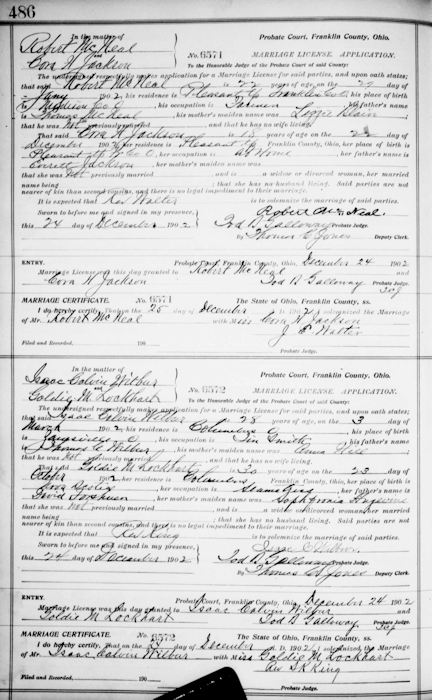 486
In the matter of
Robert McNeal
and
Cora H Jackson
Probate Court, Franklin County, Ohio.
No. 6571 MARRIAGE LICENSE APPLICATION.
To the Honorable Judge of the Probate Court of said County:
The undersigned respectfully makes application for a Marriage License for said parties, and upon oath states;
that said Robert McNeal is 22 years of age on the day of
190 2, his residence is Pleasant Tp Franklin Co O, his place of birth
is Madison Co O, his occupation is Farmer, his father's name
is Thomas McNeal, his mother's maiden name was
that he was not previously married and that he has no wife living.
That said Cora H Jackson is 18 years of age on the day of
December 190, her residence is Pleasant Tp Franklin County, Ohio, her place of birth
is, her occupation is At Home, her father's name is
Jackson, her mother's maiden name was
that she was not previously married, and is a widow or divorced woman, her married
name being ; that she has no husband living. Said parties are not
nearer of kin than second cousins, and there is no legal impediment to their marriage.
It is expected that Rev Walter is to solemnize the marriage of said parties.
Robert McNeal
Sworn to before me and signed in my presence,
this 24 day of December 190 2
Tod B Galloway Probate Judge.
By Thomas C Jones Deputy Clerk.
ENTRY. Probate Court, Franklin County, Ohio, December 24 190 2
Marriage License was this day granted to Robert McNeal and
Cora H Jackson
Tod B Galloway Probate Judge.
MARRIAGE CERTIFICATE. No. 6571 The State of Ohio, Franklin County, ss.
I do hereby certify, That on the 25 day of December A. D. 190 2, I solemnized the Marriage
of Mr. Robert McNeal with Miss Cora H Jackson
Walter
Filed and Recorded, 190 Probate Judge.
In the matter of
Isaac Calvin Wilbur
and
Goldie M Lockhart
Probate Court, Franklin County, Ohio.
No. 6572 MARRIAGE LICENSE APPLICATION.
To the Honorable Judge of the Probate Court of said County:
The undersigned respectfully makes application for a Marriage License for said parties, and upon oath states;
that said Isaac Calvin Wilbur is 28 years of age on the 3 day of
March 190 2, his residence is Columbus O, his place of birth
is, his occupation is Tin Smith, his father's name
is Thomas C Wilbur, his mother's maiden name was Anna
that he was not previously married and that he has no wife living.
That said Goldie M Lockhart is 20 years of age on the 23 day of
October 190 2, her residence is Columbus Franklin County, Ohio, her place of birth
is, her occupation is, her father's name is
David, her mother's maiden name was Sophronia
that she was not previously married, and is a widow or divorced woman, her married
name being ; that she has no husband living. Said parties are not
nearer of kin than second cousins, and there is no legal impediment to their marriage.
It is expected that Rev King is to solemnize the marriage of said parties.
Isaac C Wilbur
Sworn to before me and signed in my presence,
this 24 day of December 190 2
Tod B Galloway Probate Judge.
By Thomas C Jones Deputy Clerk.
ENTRY. Probate Court, Franklin County, Ohio, December 24 190 2
Marriage License was this day granted to Isaac Calvin Wilbur and
Goldie M Lockhart
Tod B Galloway Probate Judge.
MARRIAGE CERTIFICATE. No. 6572 The State of Ohio, Franklin County, ss.
I do hereby certify, That on the day of December A. D. 190 2, I solemnized the Marriage
of Mr. Isaac Calvin Wilbur with Miss Goldie M Lockhart
Rev King
Filed and Recorded, 190 Probate Judge.